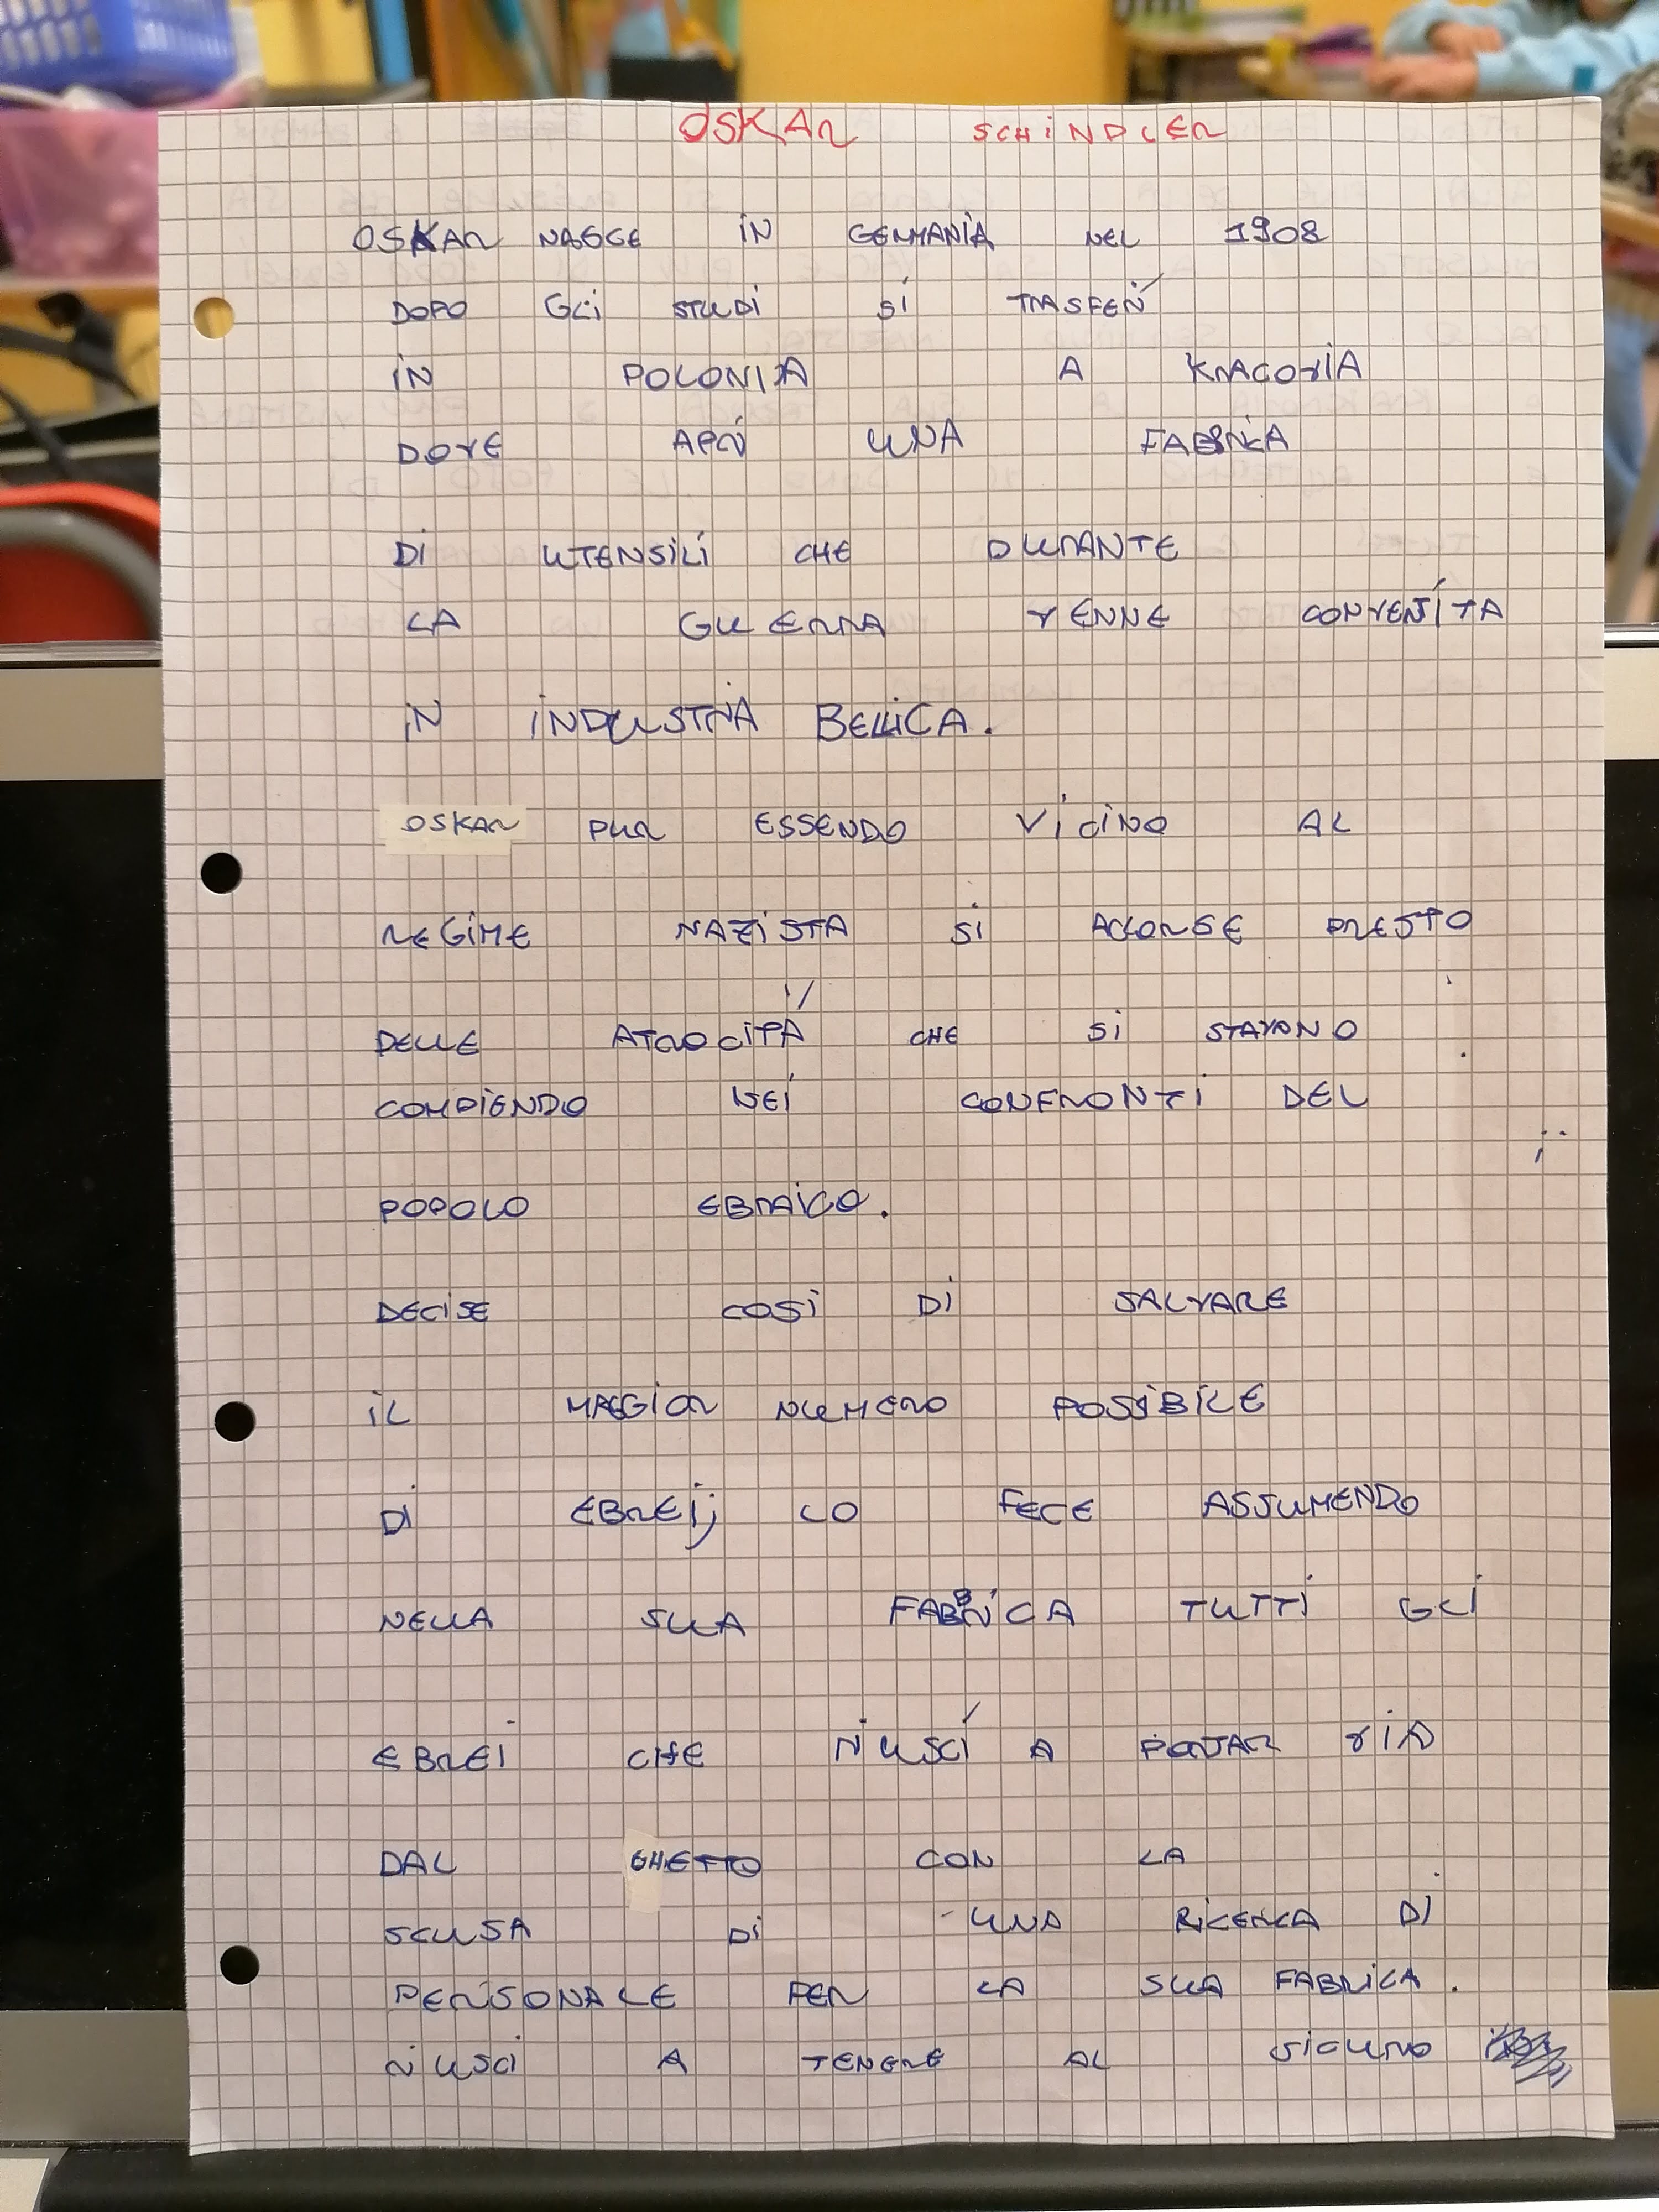 OSKAR SCHINDLER
OSKAR NASCE IN GERMANIA NEL 1908
DOPO GLI STUDI SI TRASFERÍ
IN POLONIA A KRACOVIA
DOVE APRÍ UNA FABBRICA
DI UTENSILI CHE DURANTE
LA GUERRA VENNE CONVERTITA
IN INDUSTRIA BELLICA.
OSKAR PUR ESSENDO VICINO AL
REGIME NAZISTA SI ACCORSE PRESTO
DELLE ATROCITÁ CHE SI STAVANO
COMPIENDO NEI CONFRONTI DEL
POPOLO EBRAICO.
DECISE COSI DI SALVARE
IL MAGGIOR NUMERO POSSIBILE
DI EBREI; LO FECE ASSUMENDO
NELLA SUA FABBRICA TUTTI GLI
EBREI CHE RIUSCÍ A PORTAR VIA
DAL GHETTO CON LA
SCUSA DI UNA RICERCA DI
PERSONALE PER LA SUA FABRICA.
RIUSCI A TENERE AL SICURO